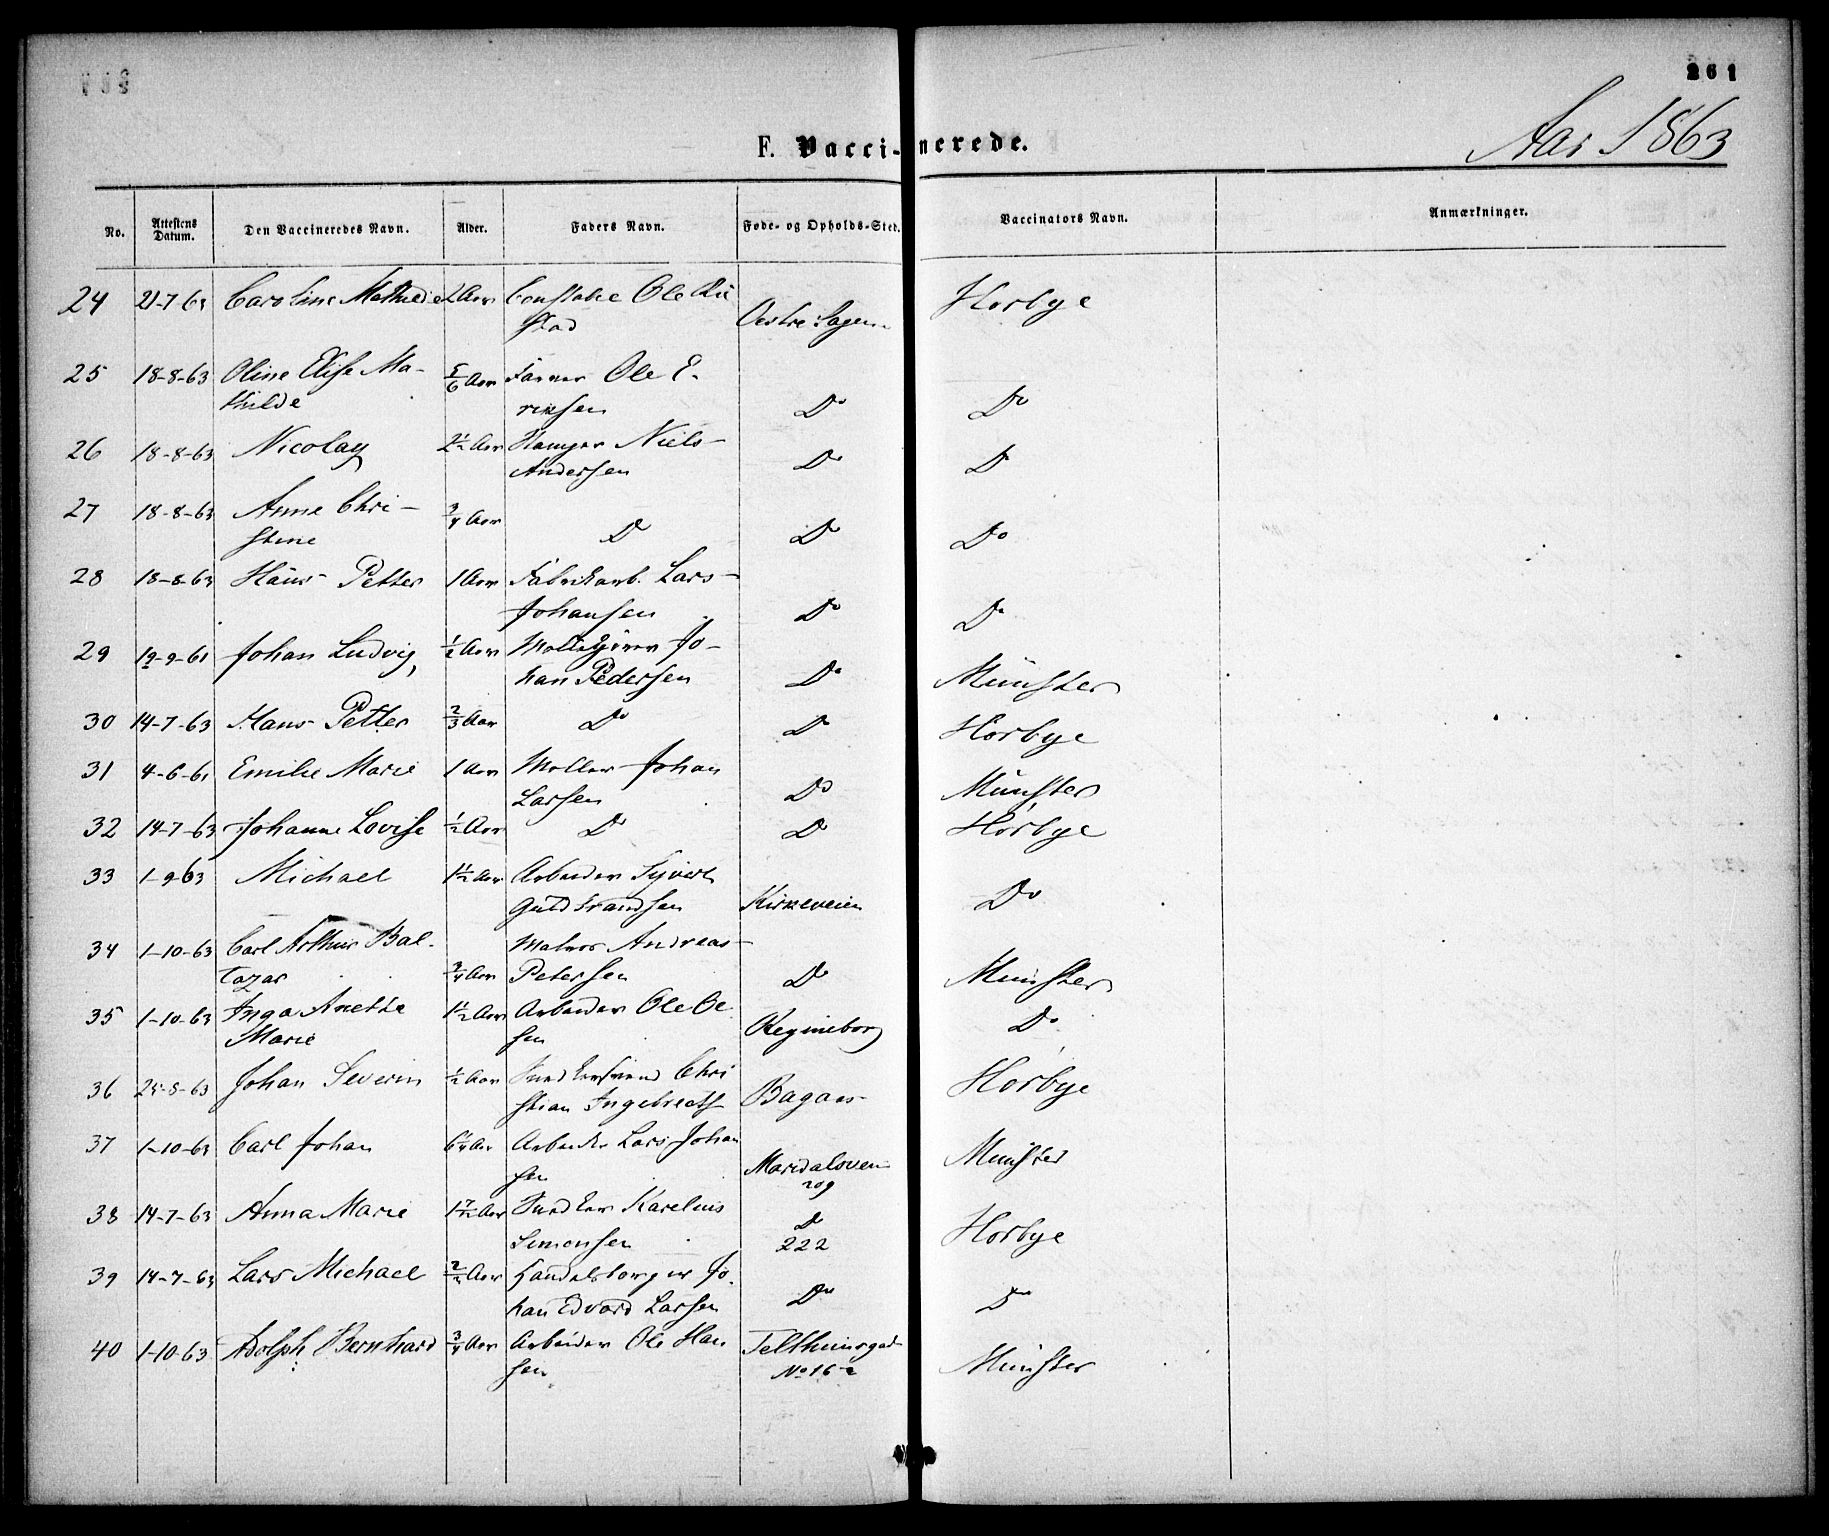 261
Aar 1863
F. Vacci-nerede.
No. Attestens Datum. Den Vaccineredes Navn. Alder. Faders Navn. Føde- og Opholds-Sted. Vaccinators Navn. Anmærkninger.
24 21-7 63 Caroline Mathilde 2 Aar Constabel Ole Ru Horbye
stad Østre Sagene
25 18-8-63 Oline Elise Ma- 5/6 Aar Farver Ole E-
thilde riksen Do Do
26 18-8-63 Nicolay 2 1/2 Aar Niels
Andersen Do Do
27 18-8-63 Anne Chri- 3/4 Aar
stine D Do Do
28 18-8-63 Hans Petter 1 Aar Fabrikarb. Lars
Johansen Do Do
29 19-9-61 Johan Ludvig 1/2 Aar Møllesvend Jo-
han Pedersen Do Münster
30 14-7-63 Hans Petter 2/3 Aar Do Do Horbye
31 4-6-61 Emilie Marie 1 Aar Møller Johan
Larsen Do Münster
32 14-7-63 Johanne Lovise 1/2 Aar Do Do Horbye
33 1-9-63 Michael 1 1/2 Aar Arbeider Syvert
Guldbrandsen Kirkeveien Do
34 1-10-63 Carl Arthur Bal- Andreas
tazar 3/4 Aar Petersen Do Münster
35 1-10-63 Inga Anette 1 1/2 Aar Arbeider Ole Ol
Marie sen Regineborg Do
36 25-8-63 Johan Severin 1/2 Aar Chri
stian Ingebrects Bagaas Horbye
37 1-10-63 Carl Johan 6 1/4 Aar Arbeider Lars Johan
sen Maridalsveien Münster
209
38 14-7-63 Anna Marie 1 7/12 Aar Snedker Karelius
Simensen Do Horbye
222
39 14-7-63 Lars Michael Aar Handelsborger Jo-
han Edvard Larsen Do Do
40 1-10-63 Adolph Bernhard 3/4 Aar Arbeider Ole Han Telthuusgad
sen No 16 a Münster